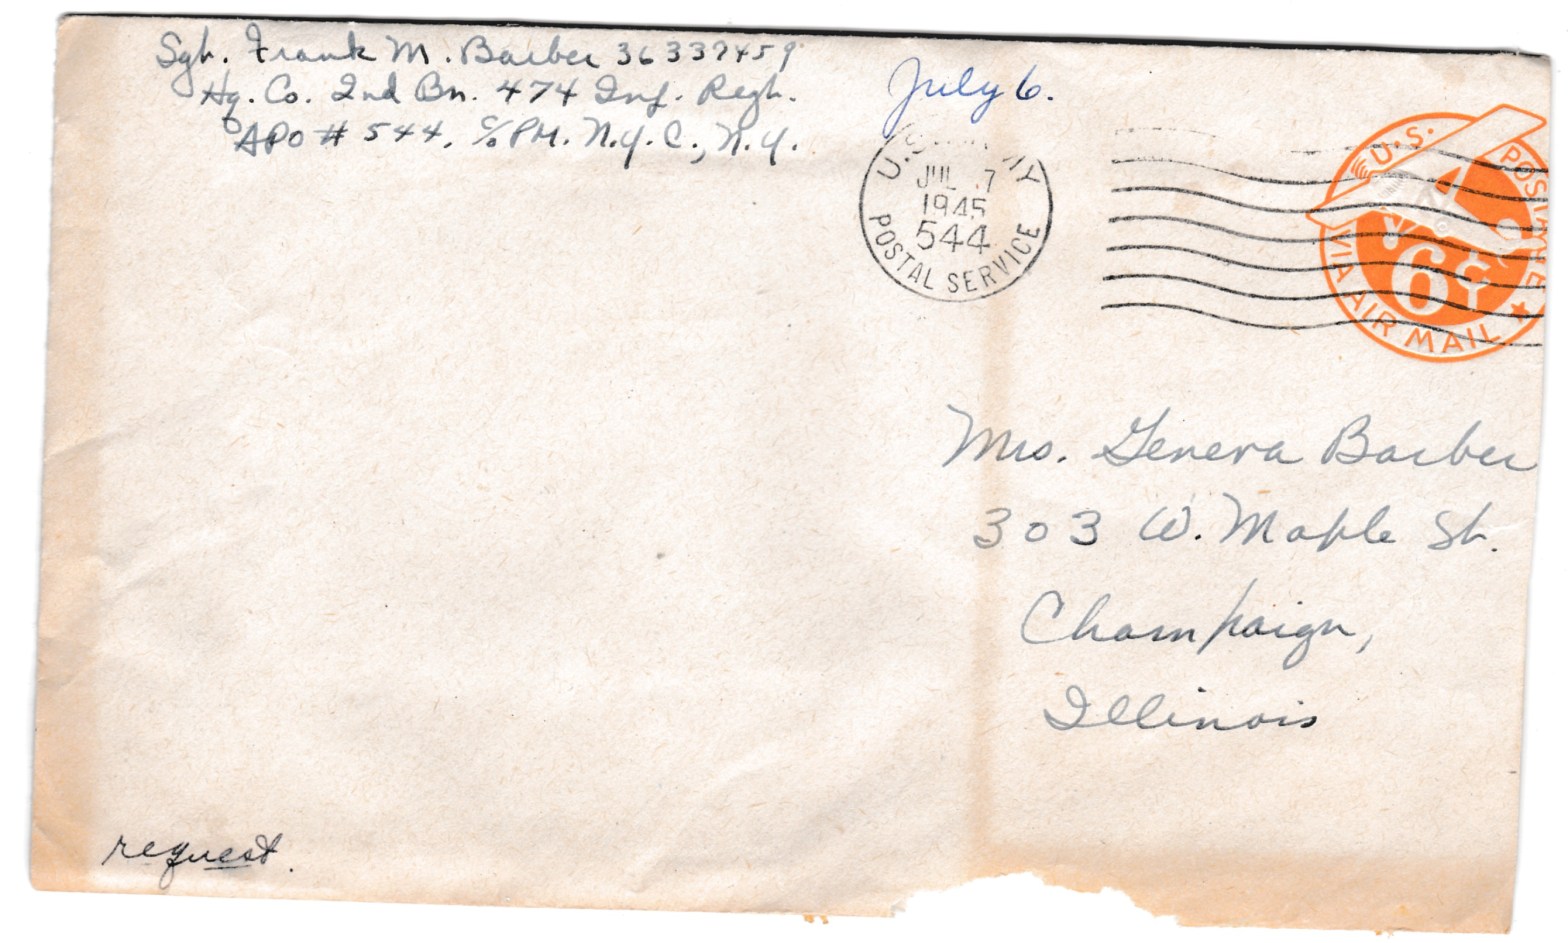 Sgt. Frank M. Barber 36337459
Hq. Co. 2nd Bn. 474 Inf. Regt.
APO # 544, c/o PM. N.Y.C., N.Y.
July 6.
U.S. ARMY
JUL 7
1945
544
POSTAL SERVICE
U.S. POSTAGE
6¢
VIA AIR MAIL
Mrs. Geneva Barber
303 W. Maple St.
Champaign,
Illinois
request.